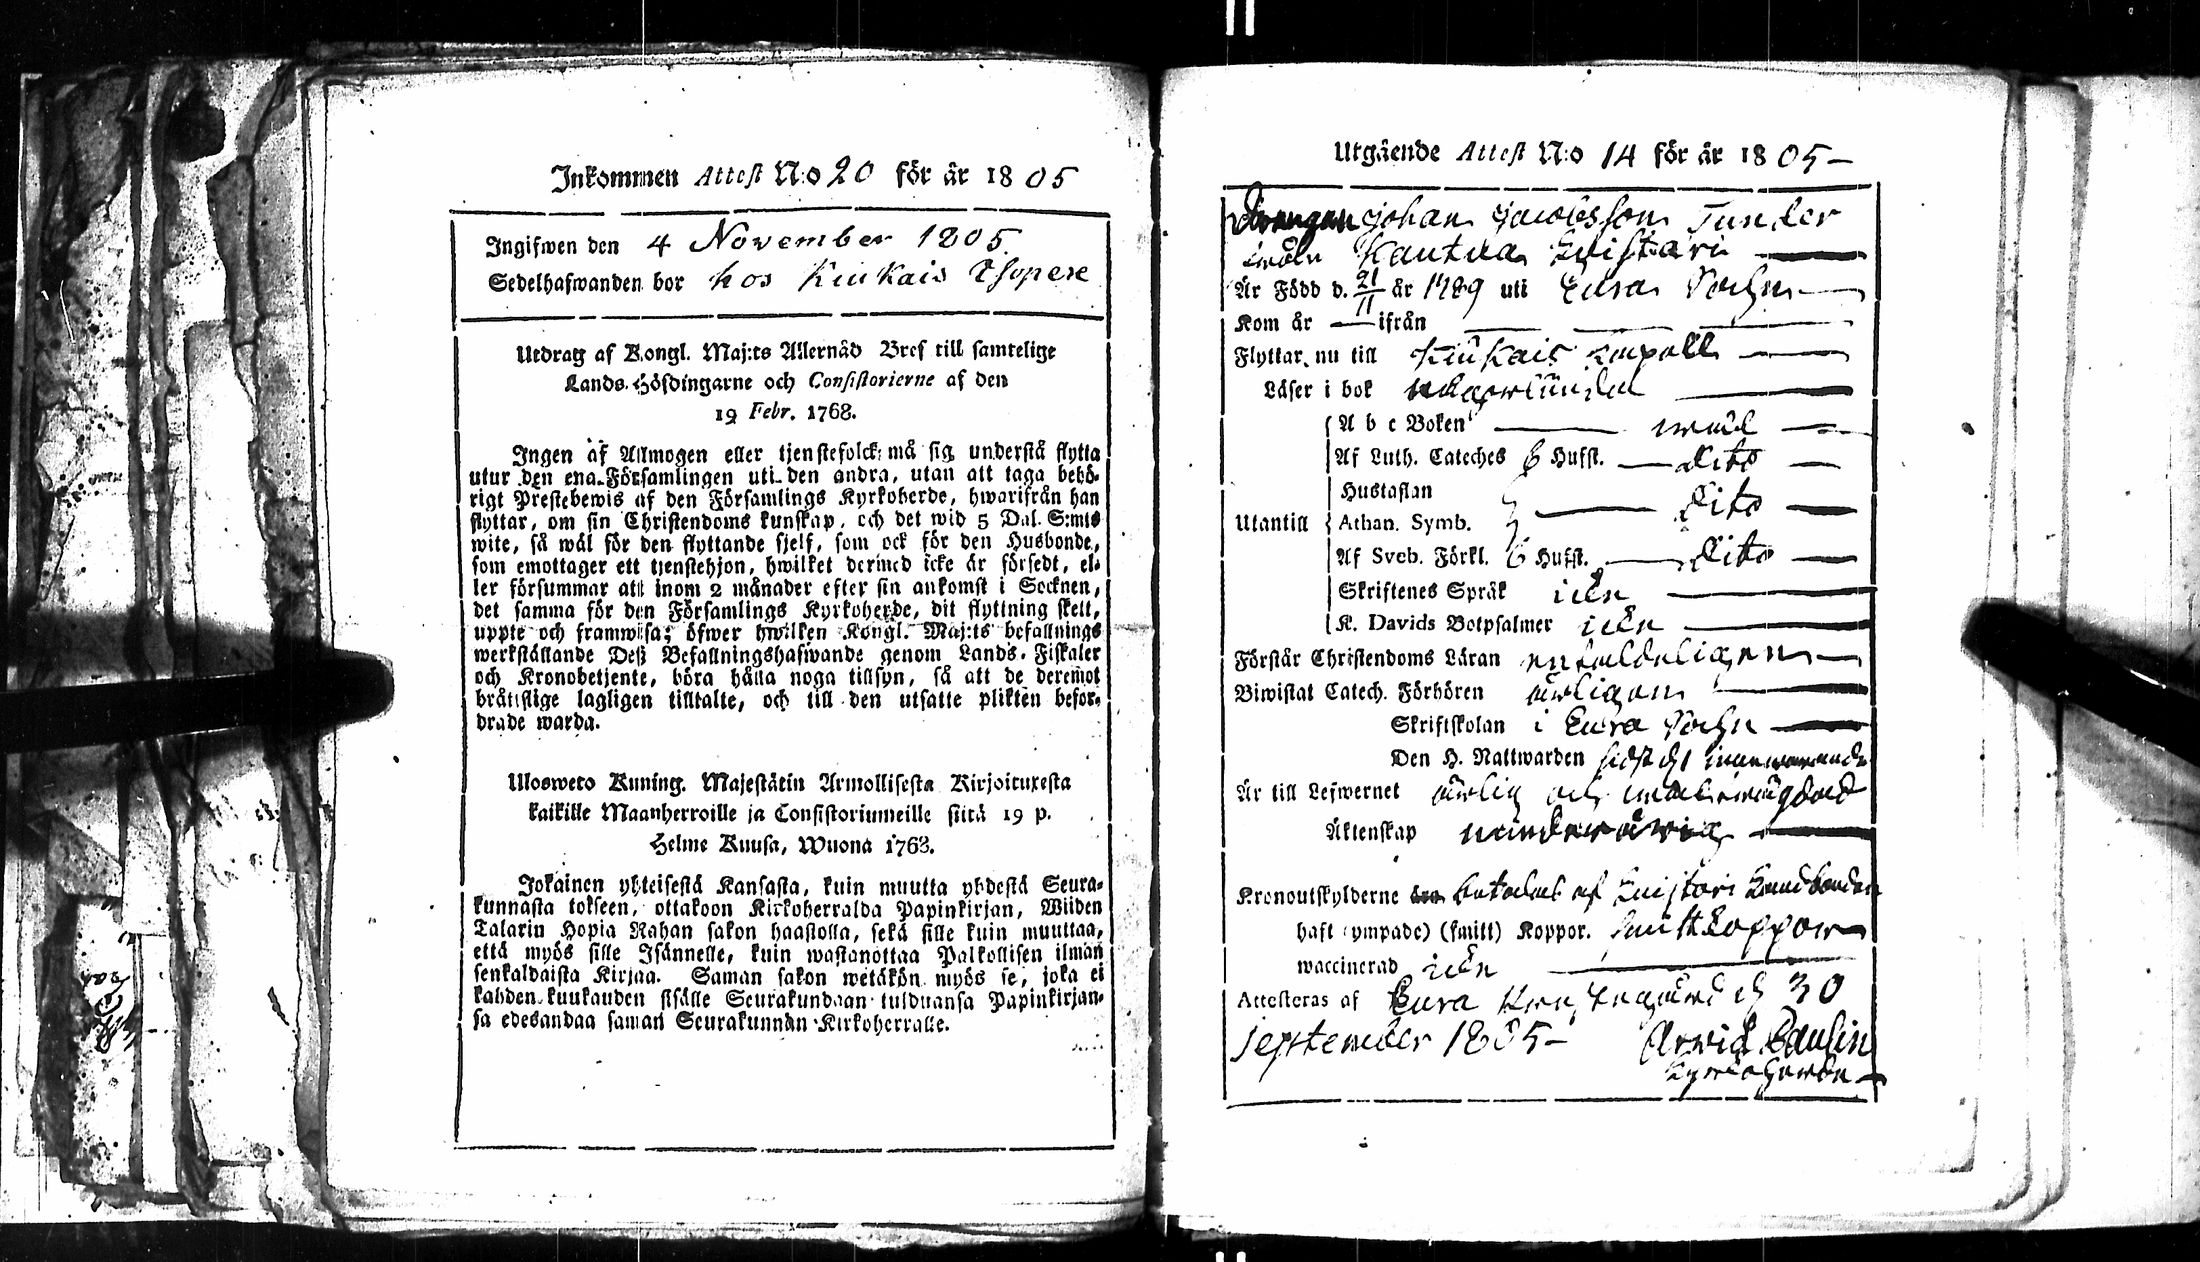 Inkommen Attest N:o 20 för år 1805
Ingifwen den 4 November 1805
Sedelhafwanden bor hos Kiukais
Utdrag af Kongl. Maj:ts Allernåd Bref till samtelige
Lands-Höfdingarne och Consistorierne af den
19 Febr. 1768.
Ingen af Allmogen eller tjenstefolck må sig understå flytta
utur den ena Församlingen uti den andra, utan att taga behö-
rigt Prestebewis af den Församlings Kyrkoherde, hwarifrån han
flyttar, om sin Christendoms kunskap, och det wid 5 Dal. S:mts
wite, så wäl för den flyttande sjelf, som ock för den Husbonde,
som emottager ett tjenstehjon, hwilket dermed icke är försedt, el-
ler försummar att inom 2 månader efter sin ankomst i Socknen,
det samma för den Församlings Kyrkoherde, dit flyttning skett,
uppte och framwisa; öfwer hwilken Kongl. Maj:ts befallnings
werkställande Deß Befallningshafwande genom Lands-Fiskaler
och Kronobetjente, böra hålla noga tillsyn, så att de deremot
bråttslige lagligen tilltalte, och till den utsatte plikten befor-
drade warda.
Ulosweto Kuning. Majestätin Armollisesta Kirjoituxesta
kaikille Maanherroille ja Consistoriumeille siitä 19 p.
Helme Kuusa, Wuona 1768.
Jokainen yhteisestä Kansasta, kuin muutta yhdestä Seura-
kunnasta tokseen, ottakoon Kirkoherralda Papinkirjan, Wiiden
Talarin Hopia Rahan sakon haastolla, sekä sille kuin muuttaa,
että myös sille Isännelle, kuin wastanottaa Palkollisen ilman
senkaldaista Kirjaa. Saman sakon wetäkön myös se, joka ei
kahden kuukauden sisälle Seurakundaan tulduansa Papinkirjan-
sa edesandaa saman Seurakunnan Kirkoherralle.
Utgående Attest N:o 14 för år 1805
Drengen Johan Jacobsson Tunder
ifrån Kautua
Är Född d. 21/11 år 1789 uti Eura Sochn
Kom år — ifrån
Flyttar nu till Kiukais Capell
Läser i bok
A b c Boken
Af Luth. Cateches 6 Hufst. dito
Hustaflan
Utantill Athan. Symb. dito
Af Sveb. Förkl. 6 Hufst. dito
Skriftenes Språk
K. Davids Botpsalmer
Förstår Christendoms Läran enfaldeligen
Biwistat Catech. Förhören årligen
Skriftskolan i Eura Sochn
Den H. Nattwarden
Är till Lefwernet ärlig och
Äktenskap
Kronoutskylderne betalas af
haft (ympade) (smitt) Koppor. smittkoppor
waccinerad
Attesteras af Eura d 30
September 1805 Arwid Paulin
Kyrkoherde